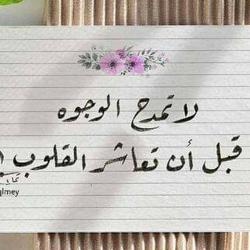 لا تمدح الوجوه
قبل أن تعاشر القلوب
qlmey